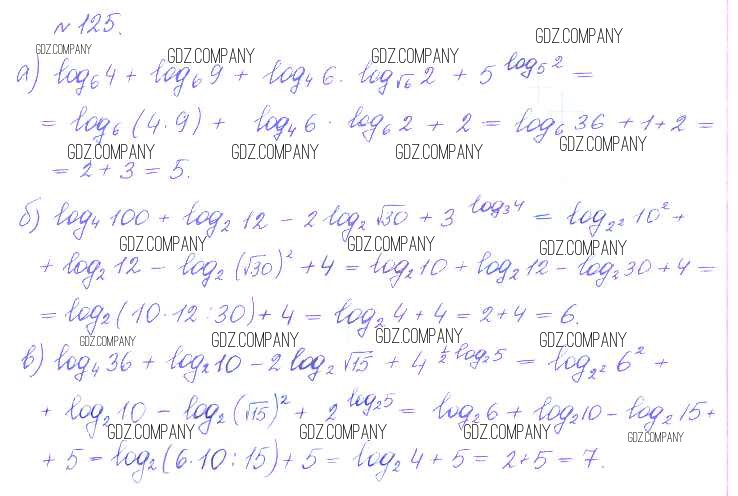 №125.
GDZ.COMPANY GDZ.COMPANY GDZ.COMPANY GDZ.COMPANY
а) log₆4 + log₆9 + log₄6 · log_√6 2 + 5^(log₅2) =
= log₆(4·9) + log₄6 · log₆2 + 2 = log₆36 + 1 + 2 =
GDZ.COMPANY GDZ.COMPANY GDZ.COMPANY GDZ.COMPANY
= 2 + 3 = 5.
б) log₄100 + log₂12 - 2log₂√30 + 3^(log₃4) = log_2² 10² +
GDZ.COMPANY GDZ.COMPANY GDZ.COMPANY
+ log₂12 - log₂(√30)² + 4 = log₂10 + log₂12 - log₂30 + 4 =
= log₂(10·12:30) + 4 = log₂4 + 4 = 2 + 4 = 6.
GDZ.COMPANY GDZ.COMPANY GDZ.COMPANY GDZ.COMPANY
в) log₄36 + log₂10 - 2log₂√15 + 4^(½log₂5) = log_2² 6² +
+ log₂10 - log₂(√15)² + 2^(log₂5) = log₂6 + log₂10 - log₂15 +
GDZ.COMPANY GDZ.COMPANY GDZ.COMPANY GDZ.COMPANY
+ 5 = log₂(6·10:15) + 5 = log₂4 + 5 = 2 + 5 = 7.